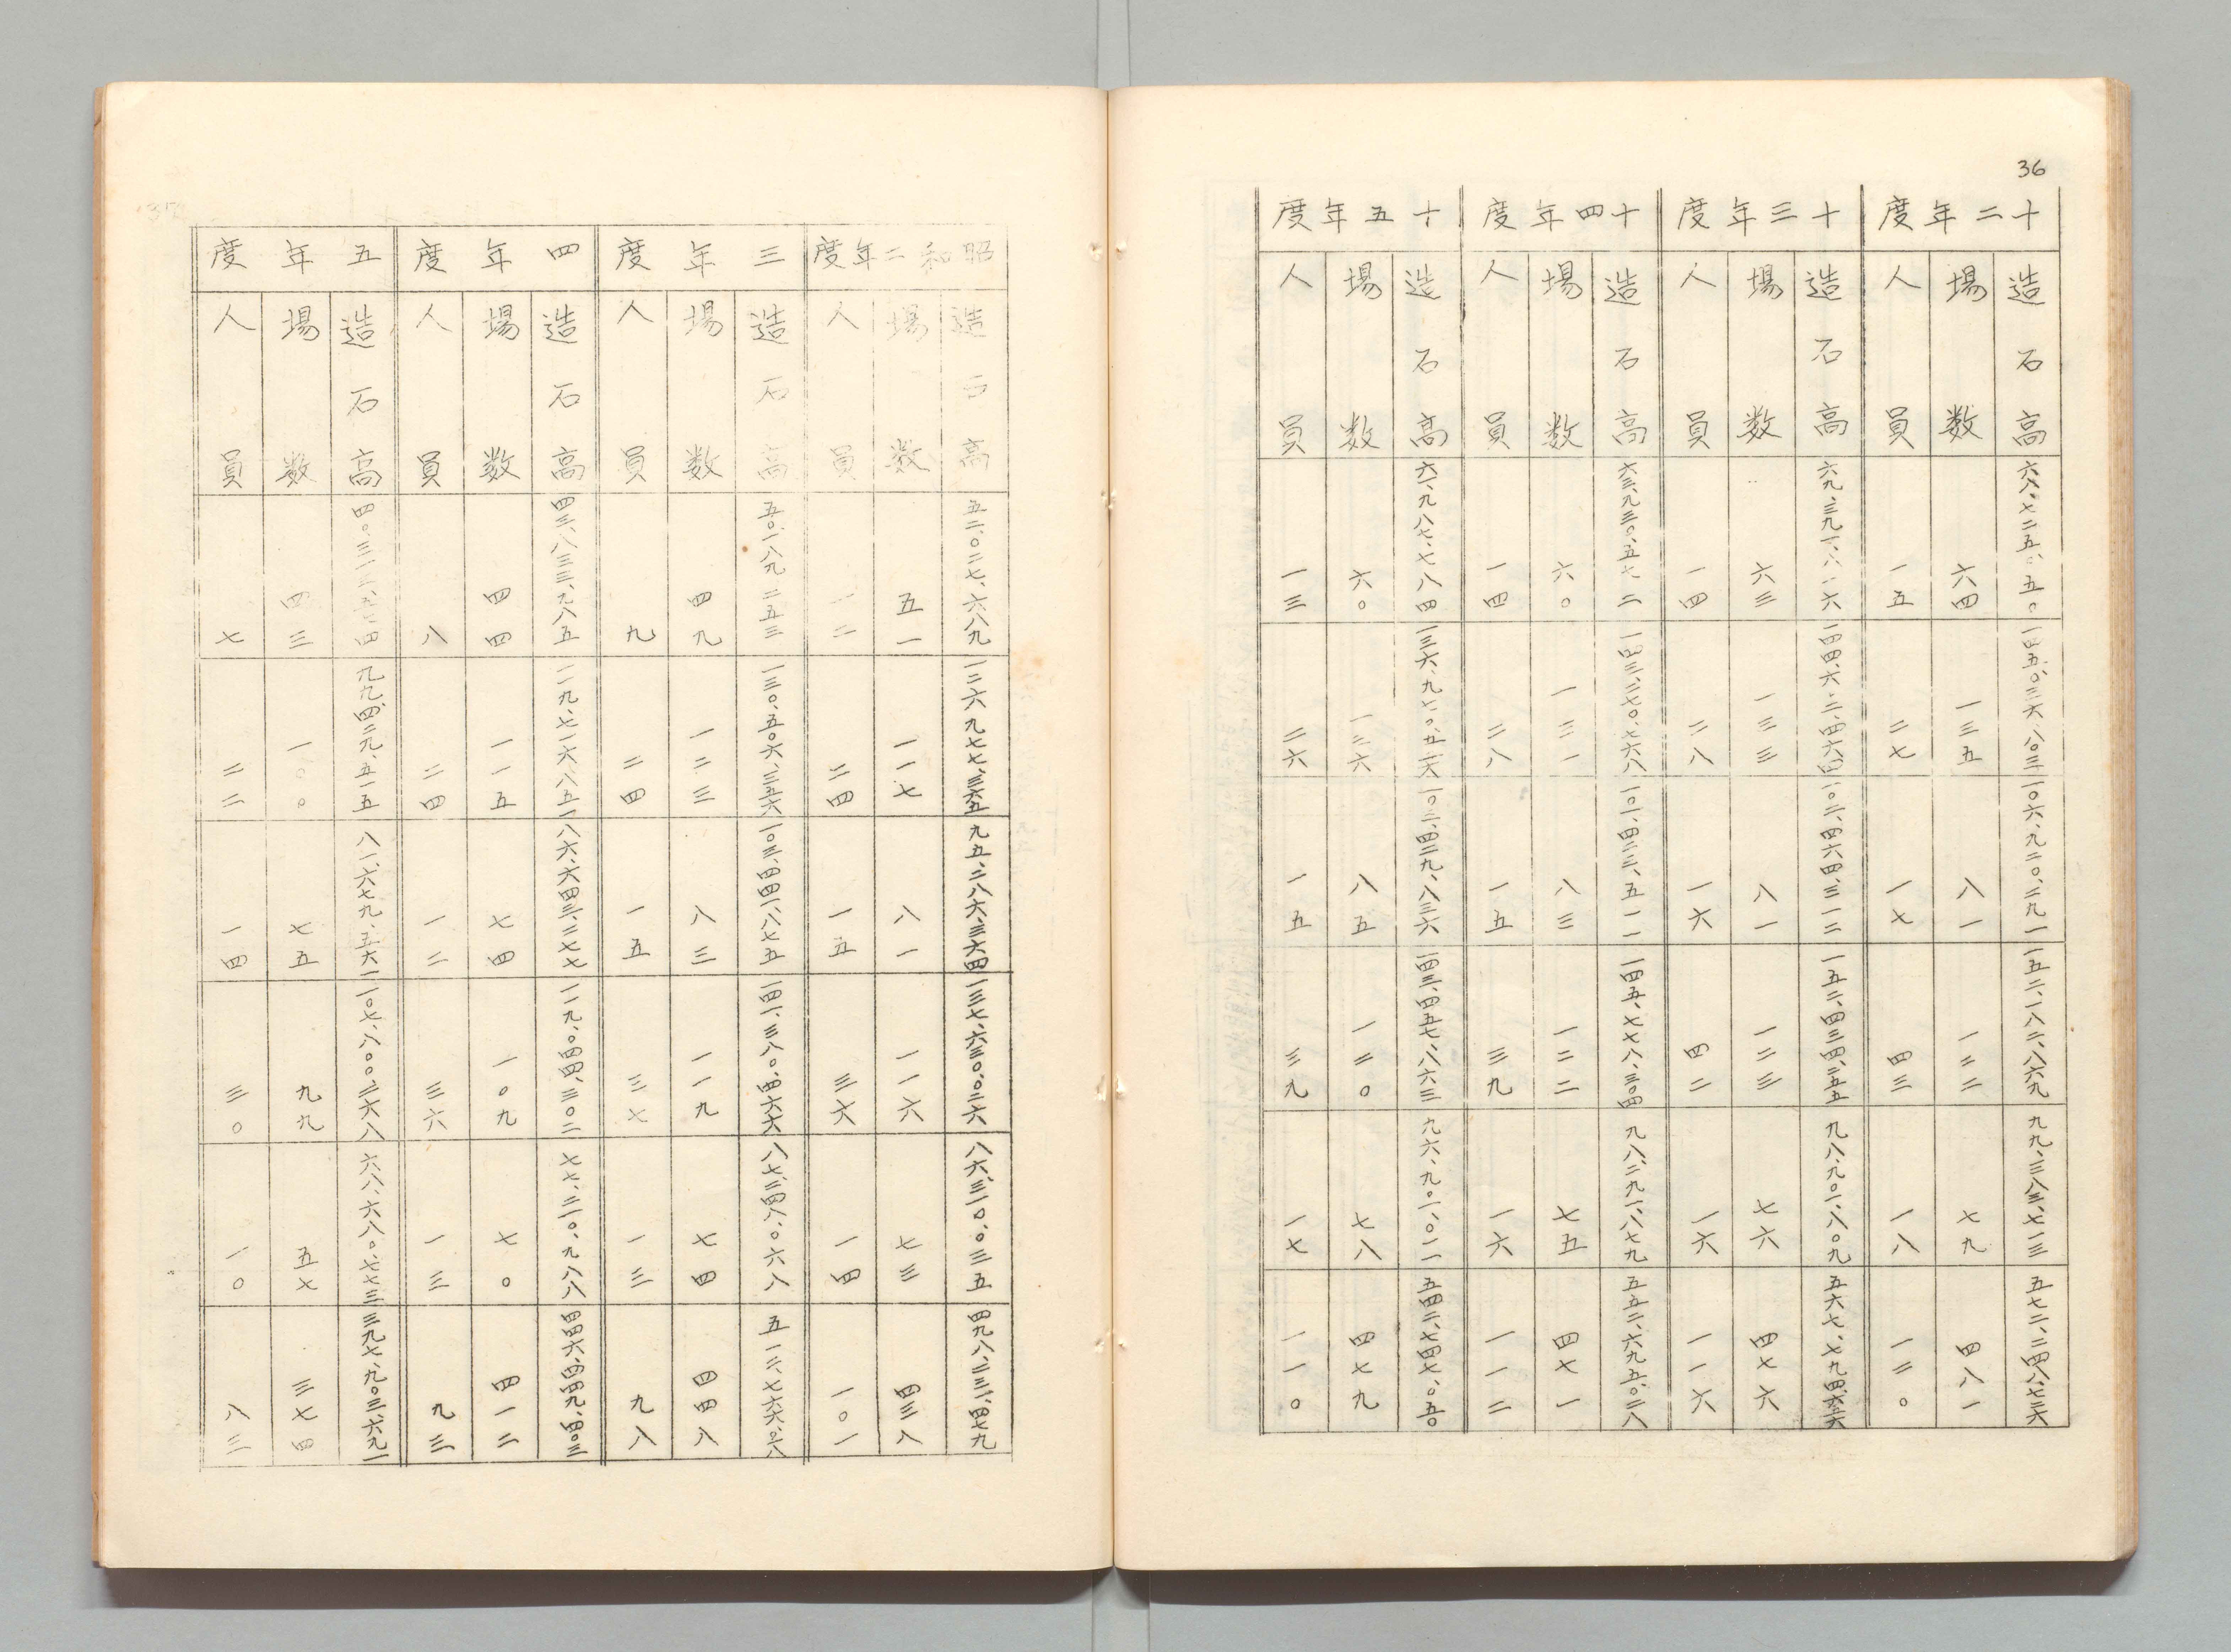 36
十二年度
造石高 六八、七二五、〇五〇 一四五、〇三六、八〇三 一〇六、九二〇、二九一 一五二、一八二、八六九 九九、三八三、七一三 五七二、二四八、七二六
場数 六四 一三五 八一 一二二 七九 四八一
人員 一五 二七 一七 四三 一八 一二〇
十三年度
造石高 六九、三九一、八一六 一四四、六〇二、四六四 一〇二、四六四、三一二 一五二、四三四、二二五 九八、九〇一、八〇九 五六七、七九四、六二六
場数 六三 一三三 八一 一二三 七六 四七六
人員 一四 二八 一六 四二 一六 一一六
十四年度
造石高 六三、九三〇、五七二 一四三、二七〇、七六八 一〇一、四二三、五一一 一四五、七七八、三〇四 九八、二九一、八七九 五五二、六九五、〇二八
場数 六〇 一三一 八三 一二二 七五 四七一
人員 一四 二八 一五 三九 一六 一一二
十五年度
造石高 六一、九八七、七八四 一三六、九七〇、五五六 一〇二、四二九、八三六 一四三、四五七、八六三 九六、九〇一、〇一一 五四一、七四七、〇五〇
場数 六〇 一三六 八五 一二〇 七八 四七九
人員 一三 二六 一五 三九 一七 一一〇
昭和二年度
造石高 五二、〇二七、六八九 一二六、九七七、三六五 九五、二八六、三六四 一三七、六三〇、〇二六 八六、三一〇、〇三五 四九八、二三一、四七九
場数 五一 一一七 八一 一一六 七三 四三八
人員 一二 二四 一五 三六 一四 一〇一
三年度
造石高 五〇、一八九、二五三 一三〇、五〇六、三五六 一〇三、四四一、八七五 一四一、三八〇、四六六 八七、二四八、〇六八 五一二、七六六、〇一八
場数 四九 一二三 八三 一一九 七四 四四八
人員 九 二四 一五 三七 一三 九八
四年度
造石高 四三、八三三、九八五 一一九、七一六、八五一 八六、六四三、二七七 一一九、〇四四、三〇二 七七、二一〇、九八八 四四六、四四九、四〇三
場数 四四 一一五 七四 一〇九 七〇 四一二
人員 八 二四 一二 三六 一三 九三
五年度
造石高 四〇、三一三、五七四 九九、四二九、五一五 八一、六七九、五六一 一〇七、八〇〇、二六八 六八、六八〇、七七三 三九七、九〇三、六九一
場数 四三 一〇〇 七五 九九 五七 三七四
人員 七 二二 一四 三〇 一〇 八三